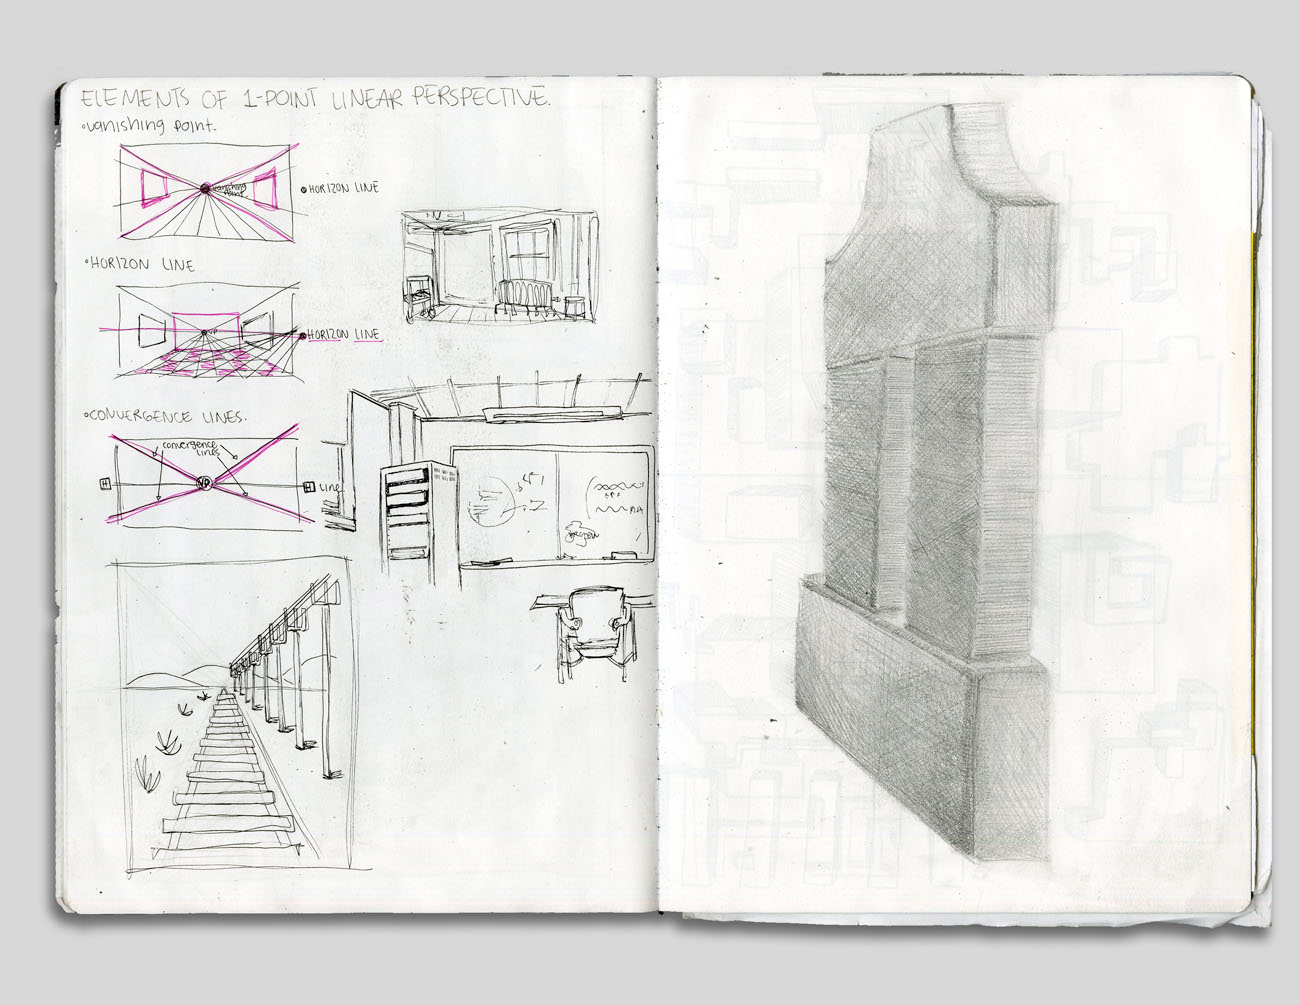 ELEMENTS OF 1-POINT LINEAR PERSPECTIVE.
•vanishing point.
vanishing
point
HORIZON LINE
•HORIZON LINE
VP
HORIZON LINE
•CONVERGENCE LINES.
convergence
lines
H
VP
H LINE